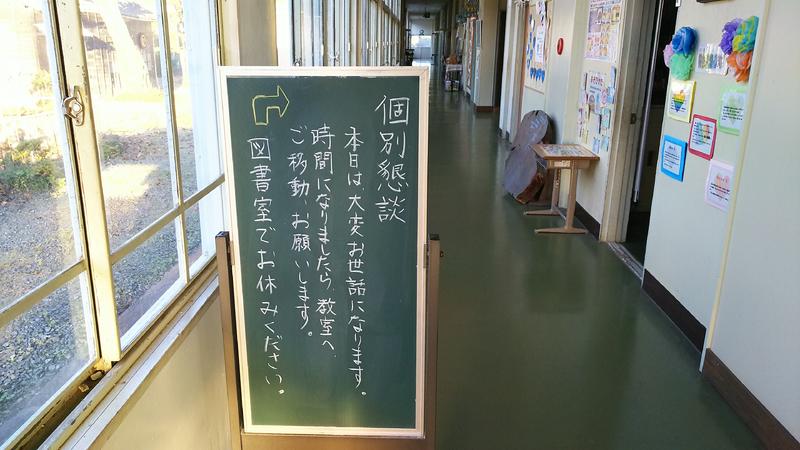 個別懇談
本日は大変お世話になります。
時間になりましたら、教室へ
ご移動、お願いします。
図書室でお休みください。